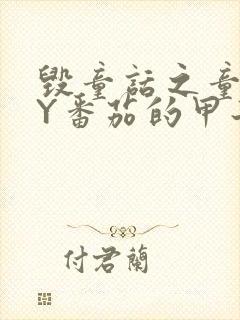 毁童话之童
Y番茄的甲
付君兰